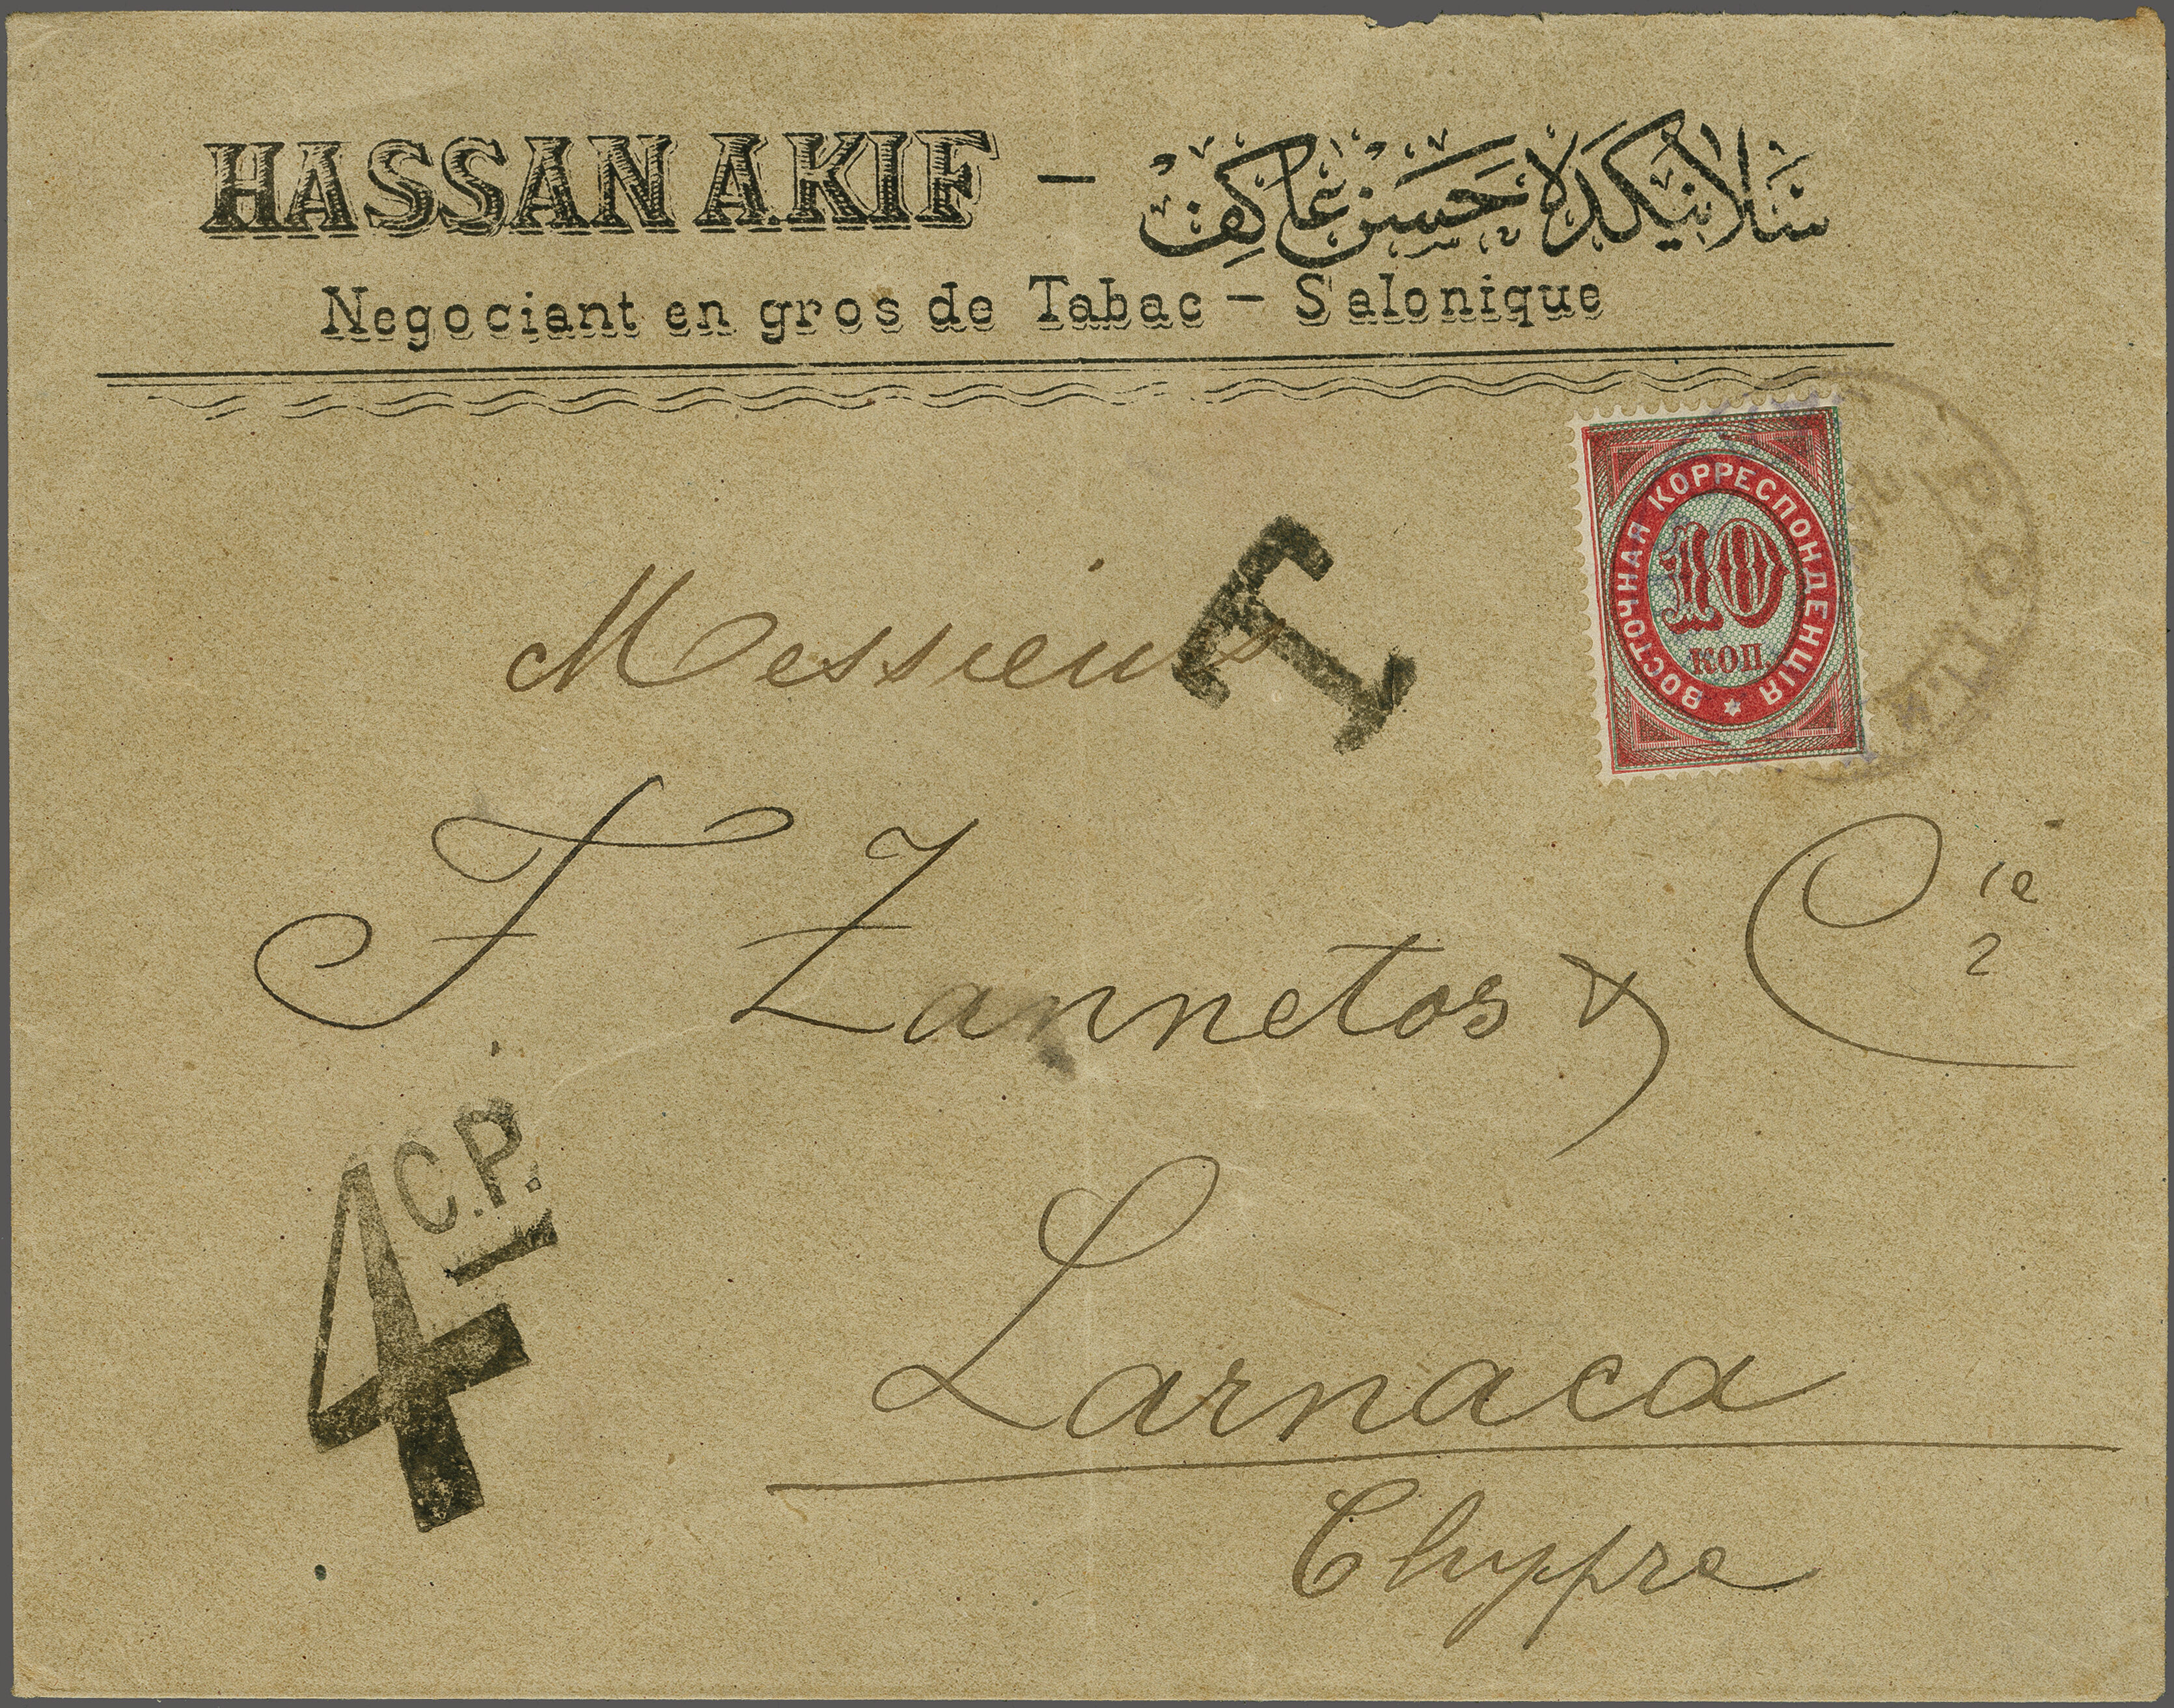 HASSAN AKIF – سلانيكده حسن عاكف
Negociant en gros de Tabac – Salonique
ВОСТОЧНАЯ КОРРЕСПОНДЕНЦІЯ
10
КОП.
T
Messieurs
F Zannetos & Cie
Larnaca
Chypre
4 C.P.